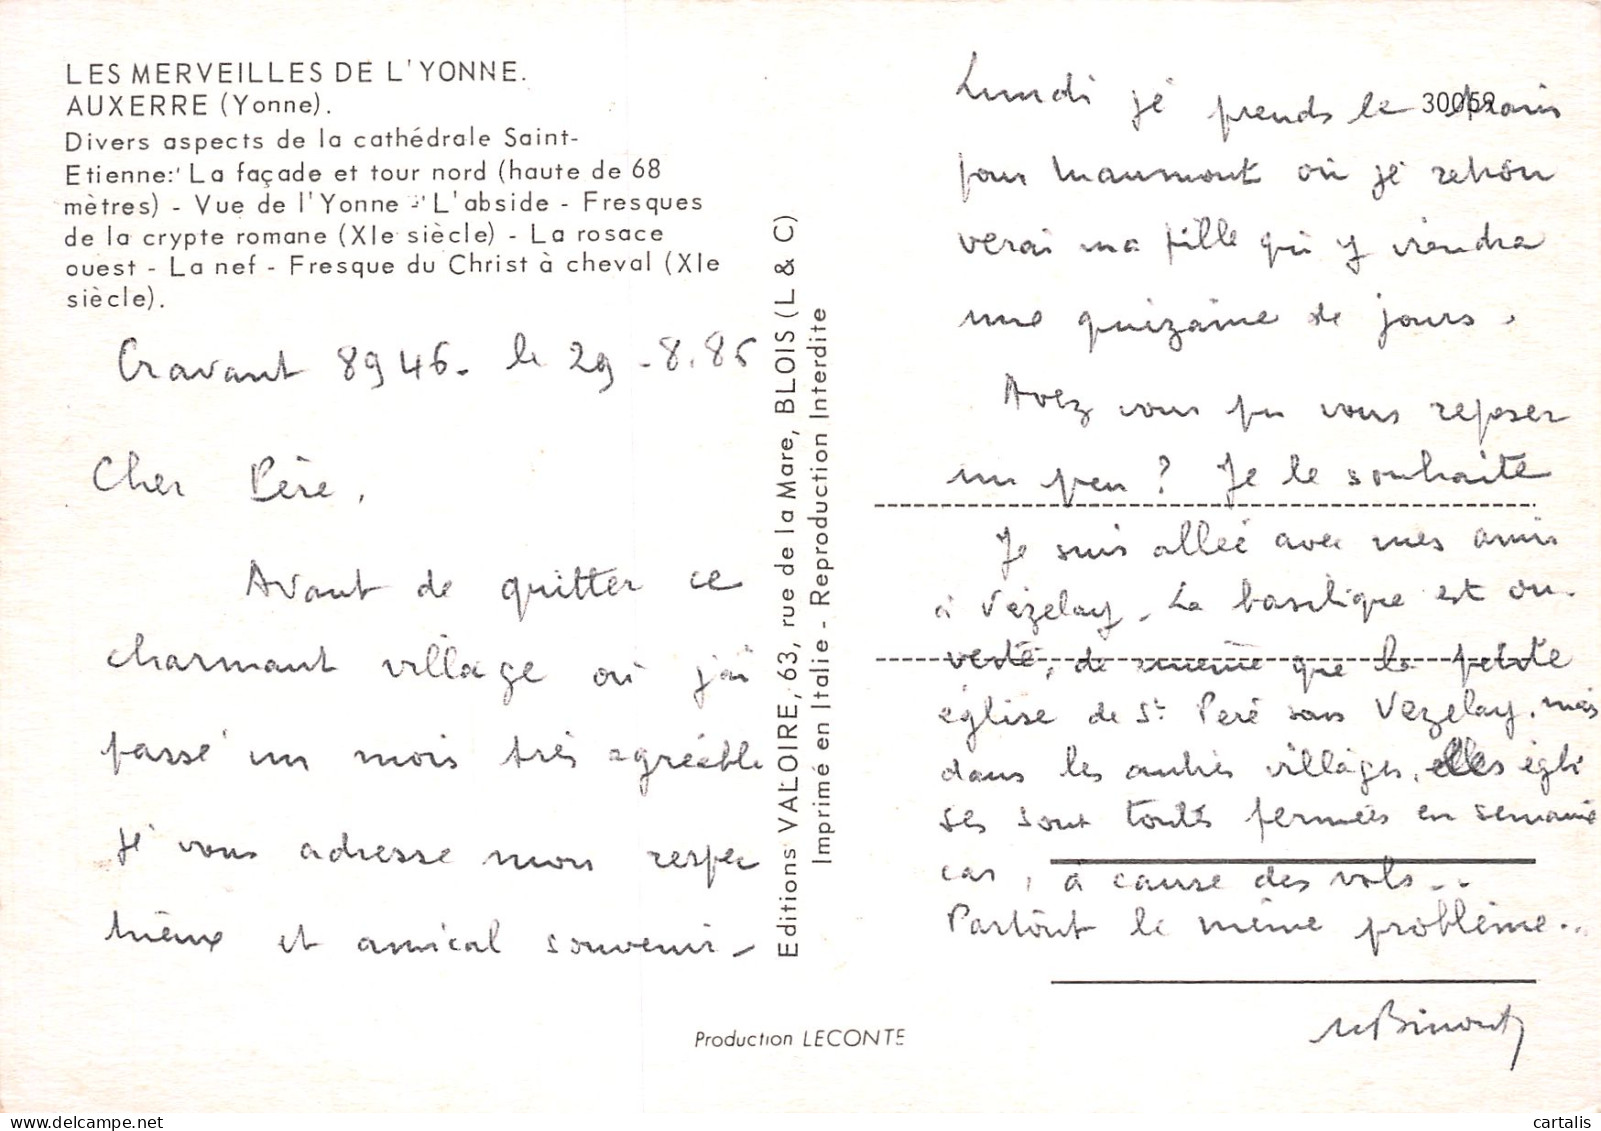 LES MERVEILLES DE L'YONNE.
AUXERRE (Yonne).
Divers aspects de la cathédrale Saint-
Etienne: La façade et tour nord (haute de 68
mètres) - Vue de l'Yonne - L'abside - Fresques
de la crypte romane (XIe siècle) - La rosace
ouest - La nef - Fresque du Christ à cheval (XIe
siècle).
Cravant 89 46. le 29 - 8.86
Cher Père,
Avant de quitter ce
charmant village où j'ai
passé un mois très agréable
je vous adresse mon respec
tueux et amical souvenir -
Editions VALOIRE, 63, rue de la Mare, BLOIS (L & C)
Imprimé en Italie - Reproduction Interdite
Production LECONTE
30052
Lundi je prends le train
pour Maumont où je retrou
verai ma fille qui y viendra
une quizaine de jours.
Avez vous pu vous reposer
un peu ? Je le souhaite
Je suis allée avec mes amis
à Vézelay - La basilique est ou-
verte, de même que la petite
église de St Père sous Vézelay, mais
dans les autres villages, égli
ses sont toutes fermées en semaine
car, à cause des vols...
Partout le même problème...
cartalis.com